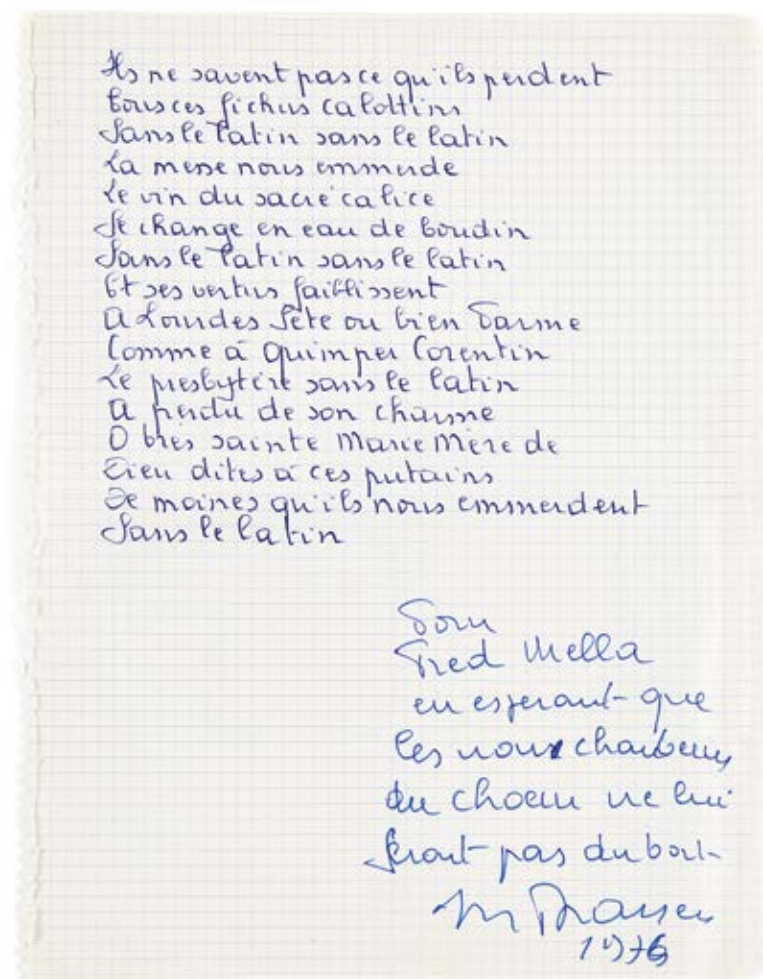 Ils ne savent pas ce qu'ils perdent
tous ces fichus calottins
Sans le latin sans le latin
La messe nous emmerde
Le vin du sacré calice
Se change en eau de boudin
Sans le latin sans le latin
Et ses vertus faiblissent
A Lourdes Sète ou bien Parme
Comme à Quimper Corentin
Le presbytère sans le latin
A perdu de son charme
O très sainte Marie Mère de
Dieu dites à ces putains
De moines qu'ils nous emmerdent
Sans le latin
Pour
Fred Mella
en esperant que
les nouveaux chanteurs
du choeur ne lui
feront pas du tort
G Brassens
1976